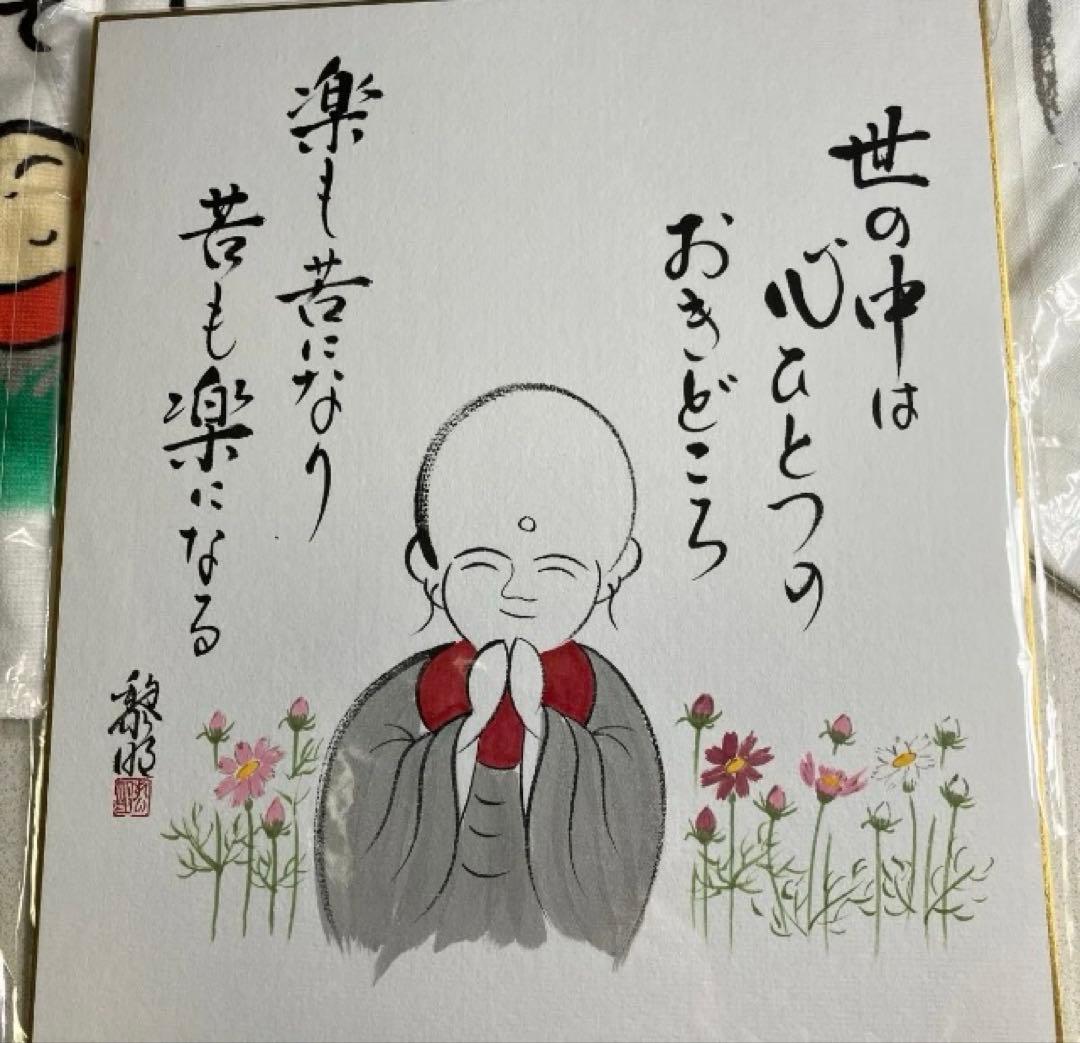 世の中は
心ひとつの
おきどころ
楽も苦になり
苦も楽になる
黎明